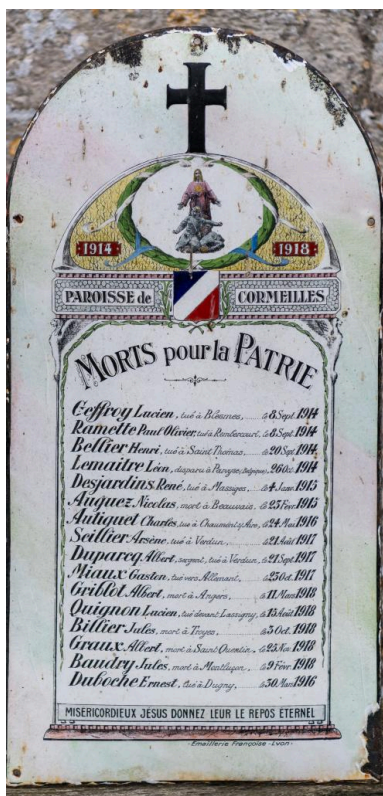 1914 1918
PAROISSE de CORMEILLES
MORTS pour la PATRIE
Geffroy Lucien, tué à Blesmes, le 8 Sept. 1914
Ramette Paul Olivier, tué à Rembercourt, le 8 Sept. 1914
Bellier Henri, tué à Saint Thomas, le 20 Sept. 1914
Lemaitre Léon, disparu à Pervyse, (Belgique), 26 Oc. 1914
Desjardins René, tué à Massiges, le 4 Janv. 1915
Auguez Nicolas, mort à Beauvais, le 25 Févr. 1915
Antiquet Charles, tué à Chaumont s/Aire, le 24 Mai 1916
Seillier Arsène, tué à Verdun, le 21 Août 1917
Duparcq Albert, sergent, tué à Verdun, le 21 Sept. 1917
Miaux Gaston, tué vers Allemant, le 23 Oct. 1917
Griblot Albert, mort à Angers, le 11 Mars 1918
Quignon Lucien, tué devant Lassigny, le 15 Août 1918
Billier Jules, mort à Troyes, le 3 Oct. 1918
Graux Albert, mort à Saint Quentin, le 25 Nov. 1918
Baudry Jules, mort à Montluçon, le 9 Févr. 1918
Duboche Ernest, tué à Dugny, le 30 Mars 1916
MISERICORDIEUX JESUS DONNEZ LEUR LE REPOS ÉTERNEL
- Emaillerie Française - Lyon -